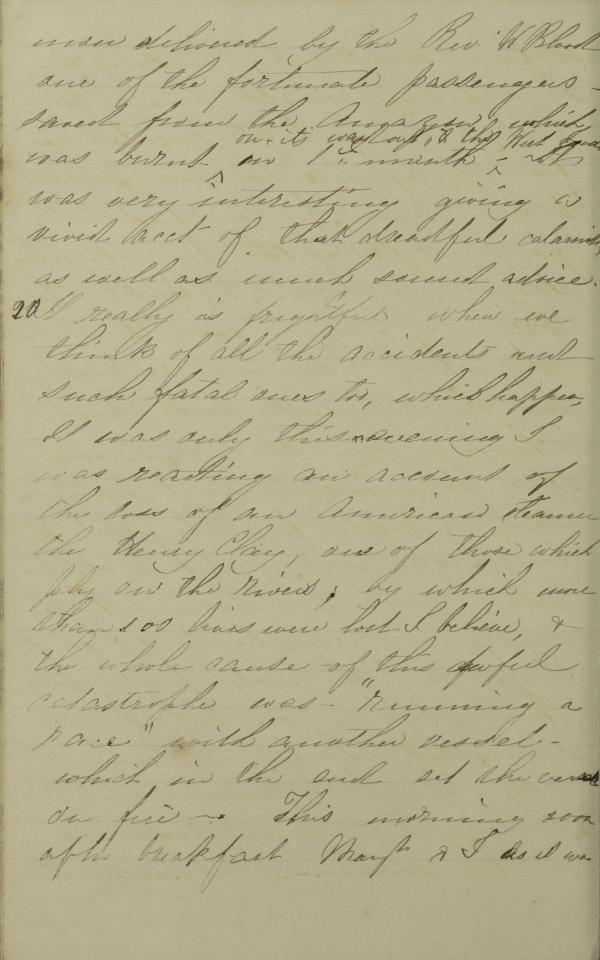 mon delivered by the Rev W Blood
one of the fortunate passengers
saved from the Amazon, which
on its way out to the West
was burnt in month - It
was very interesting giving a
vivid acct of that dreadful calamity,
as well as much sound advice.
20 It really is frightful when we
think of all the accidents and
such fatal ones too, which happen,
It was only this evening I
was reading an account of
the loss of an American steamer
the Henry Clay, one of those which
ply on the rivers; by which more
than 100 lives were lost I believe, &
the whole cause of this awful
catastrophe was - "running a
race" with another vessel -
which in the end set the vessel
on fire - This morning soon
after breakfast Margt & I as it was